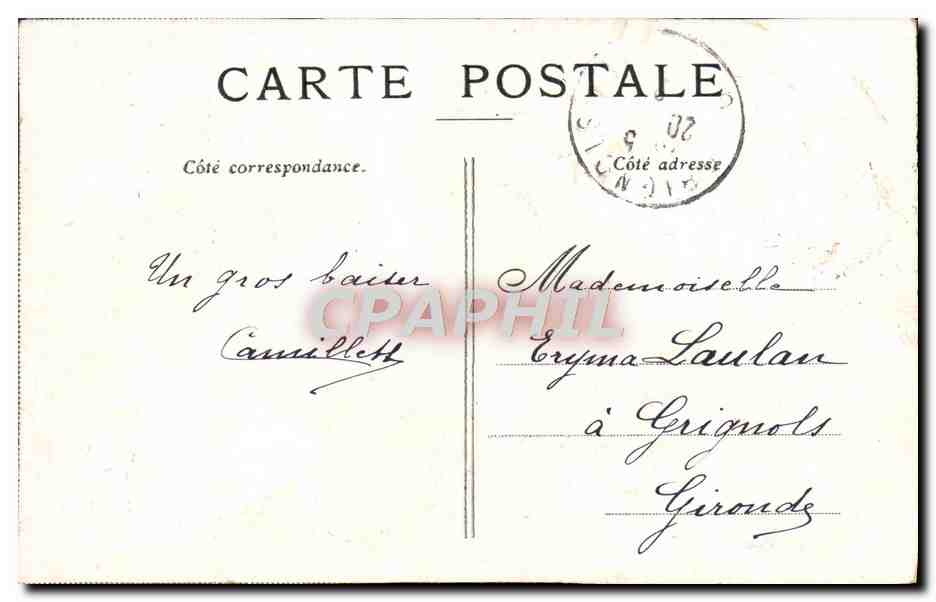 CARTE POSTALE
Côté correspondance.
Côté adresse
20
5
Un gros baiser
Camillett
Mademoiselle
Eryma Laulan
à Grignols
Gironde
CPAPHIL